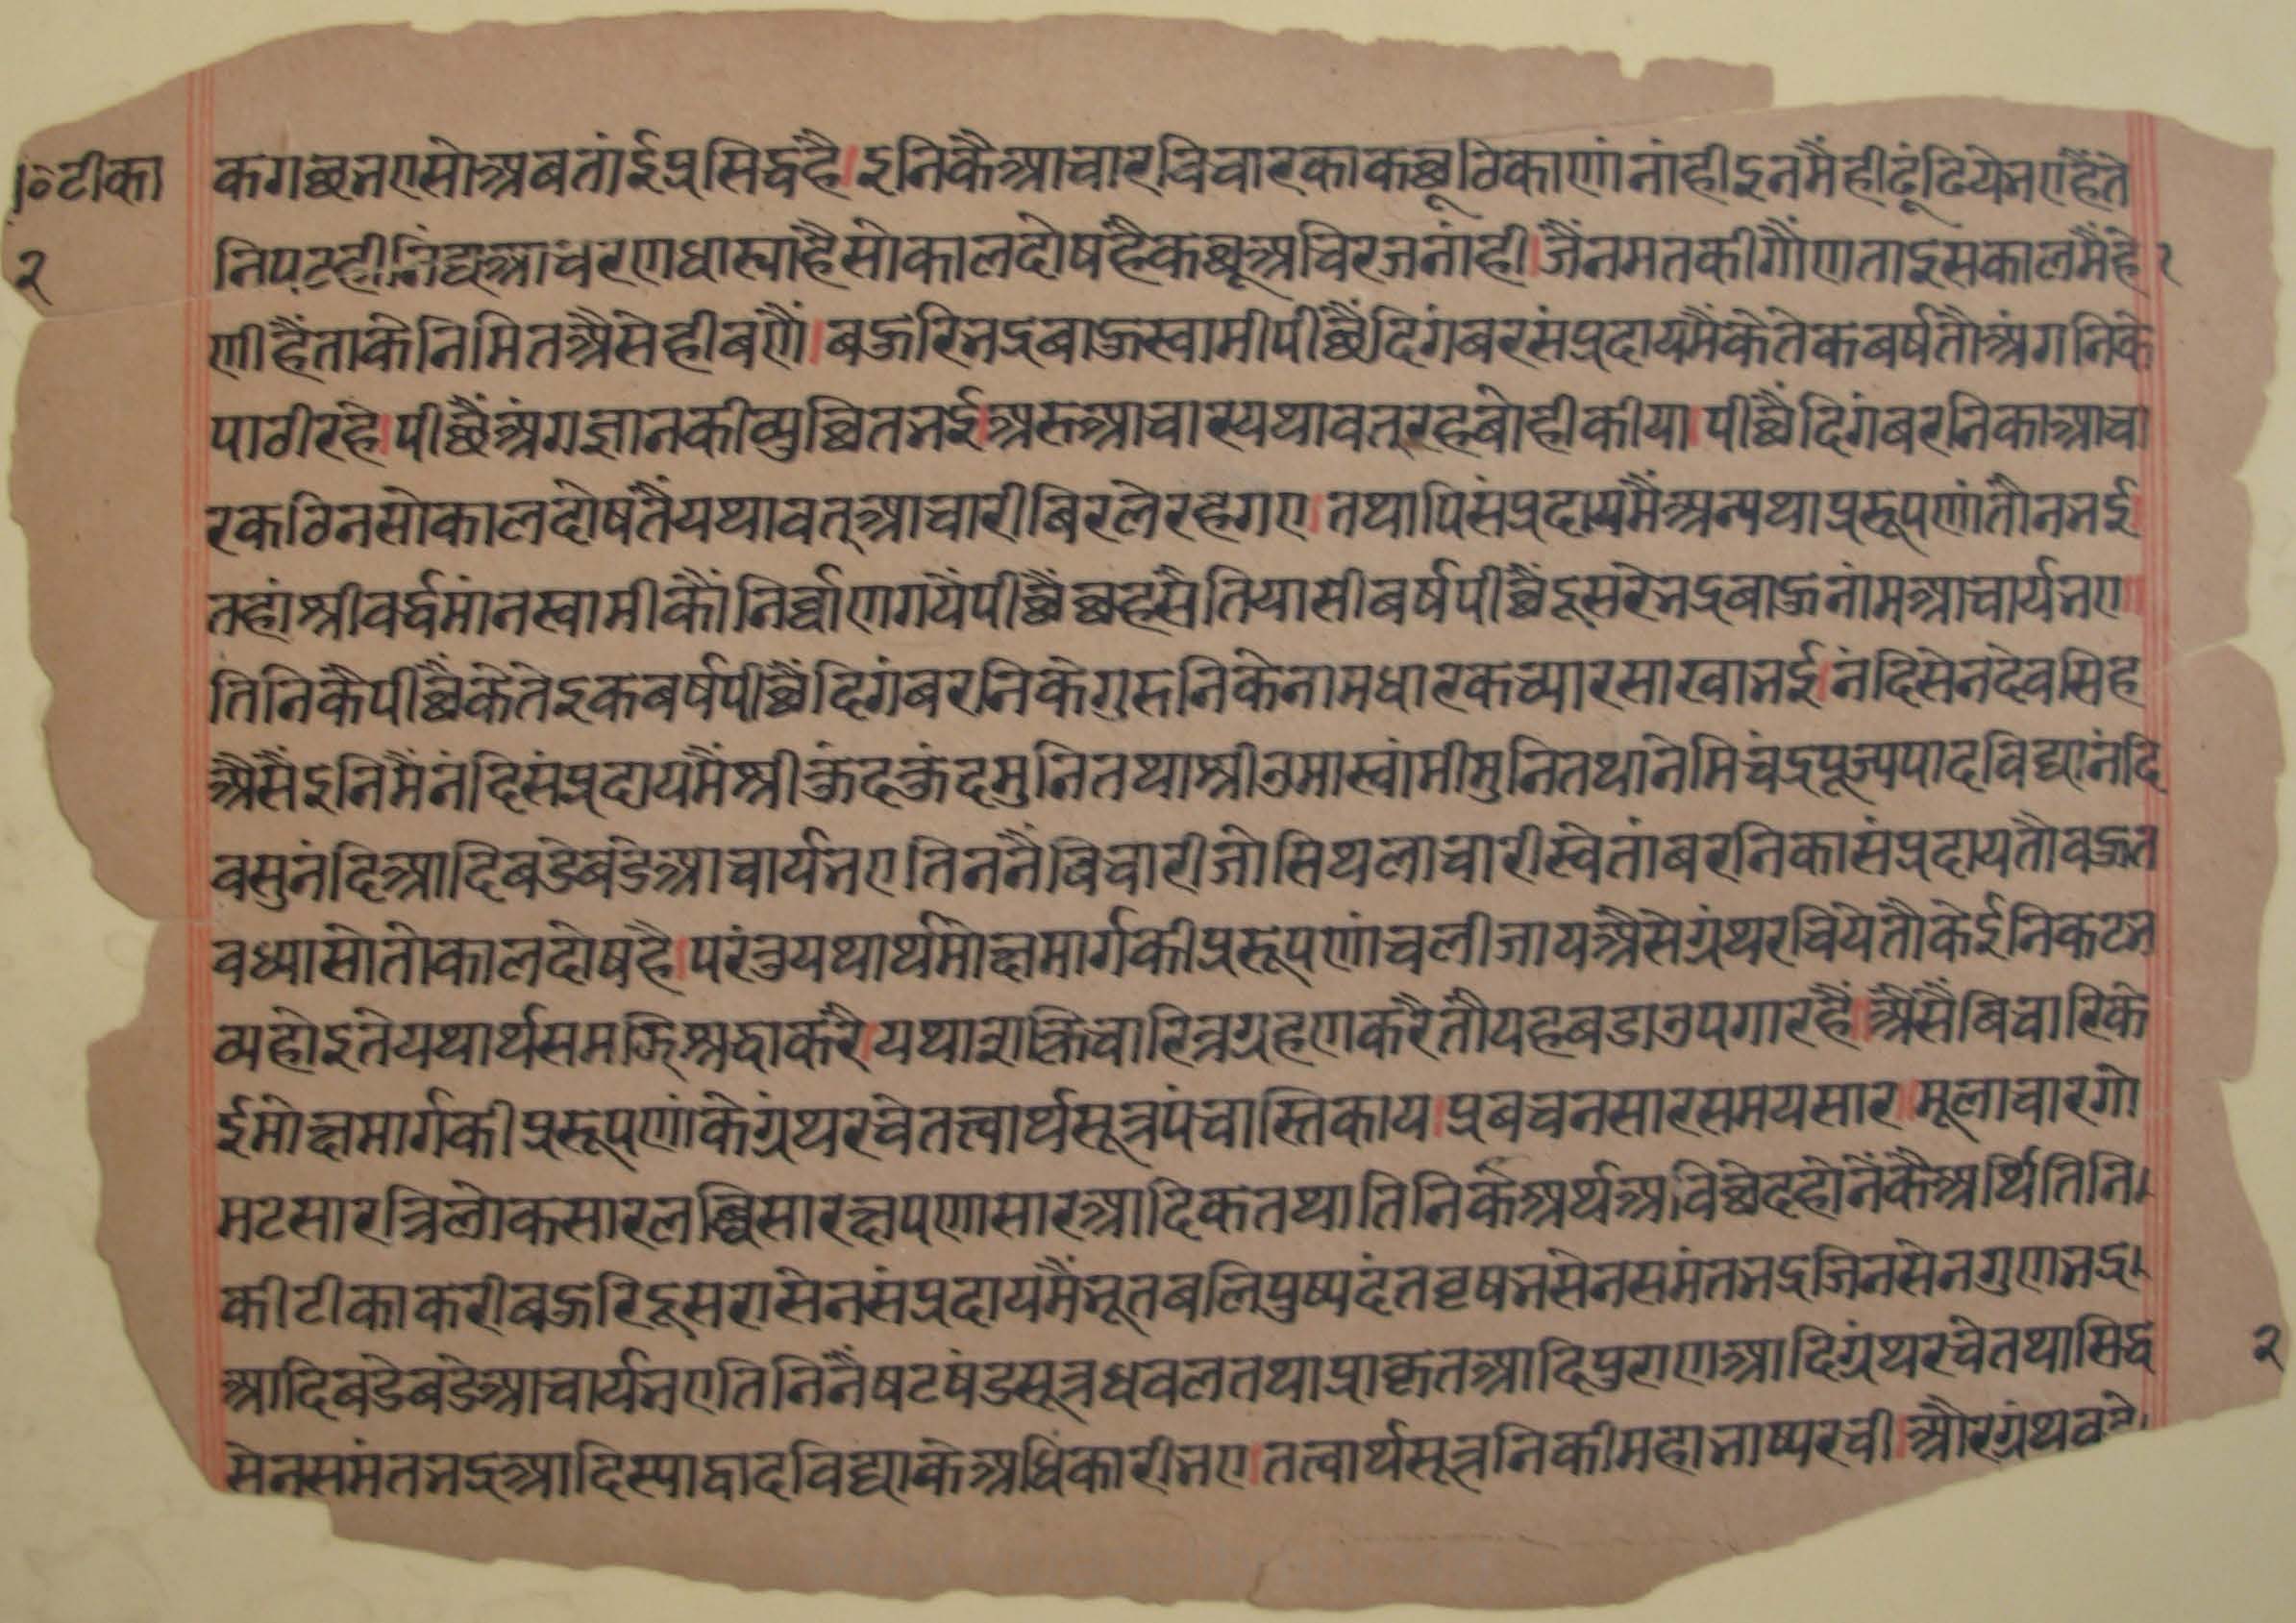 टीका
२
कगछभएसोअबतांईप्रसिद्धहै।इनिकैआचारविचारकाकछूठिकाणांनांहीइनमैंहीढूंढियेभएहैंते
निपटहीनिंद्यआचरणधास्याहैसोकालदोषहैकछूअचिरजनांही।जैंनमतकीगौंणताइसकालमैंहो २
णीहैंताकेनिमितअैसेहीबणैं।बहुरिभद्रबाहुस्वामीपीछैंदिगंबरसंप्रदायमैंकेतेकबर्षतौअंगनिके
पाठीरहे।पीछैंअंगज्ञानकीव्युछितभई।अरुआचारयथावत्रहबोहीकीया।पीछैंदिगंबरनिकाआचा
रकठिनसोकालदोषतैंयथावत्आचारीबिरलेरहगए।तथापिसंप्रदायमैंअन्यथाप्ररूपणांतौनभई
तहांश्रीवर्धमांनस्वामीकौंनिर्वाणगयेंपीछैंछहसैतियासीबर्षपीछैंदूसरेभद्रबाहुनांमआचार्यभए।
तिनिकैपीछैंकेतेइकबर्षपीछैंदिगंबरनिकेगुरुनिकेनामधारकच्यारसाखाभई।नंदिसेनदेवसिंह
अैसैंइनिमैंनंदिसंप्रदायमैंश्रीकुंदकुंदमुनितथाश्रीउमास्वांमीमुनितथानेमिचंद्रपूज्यपादविद्यानंदि
वसुनंदिआदिबडेबडेआचार्यभएतिननैंबिचारीजोसिथलाचारीस्वेतांबरनिकासंप्रदायतौबहुत
वध्यासोतोकालदोषहै।परंतुयथार्थमोक्षमार्गकीप्ररूपणांचलीजायअैसेग्रंथरचियेतौकेईनिकटभ
व्यहोइतेयथार्थसमझिश्रद्धाकरै।यथाशक्तिचारित्रग्रहणकरैतौयहबडाउपगारहैं।अैसैंबिचारिके
ईमोक्षमार्गकीप्ररूपणांकेग्रंथरचेतत्त्वार्थसूत्रपंचास्तिकाय।प्रबचनसारसमयसार।मूलाचारगो
मटसारत्रिलोकसारलब्धिसारक्षपणासारआदिकतथातिनिकेअर्थअविछेदहोनेंकैअर्थितिनि।
कीटीकाकरीबहुरिदूसरासेनसंप्रदायमैंभूतबलिपुष्पदंतवृषभसेनसमंतभद्रजिनसेनगुणभद्र।
आदिबडेबडेआचार्यभएतिनिनैंषटषंडसूत्रधवलतथाप्राकृतआदिपुराणआदिग्रंथरचेतथासिद्ध २
सेनसमंतभद्रआदिस्याद्वादविद्याकेअधिकारीभए।तत्त्वार्थसूत्रनिकीमहाभाष्यरची।औरग्रंथ